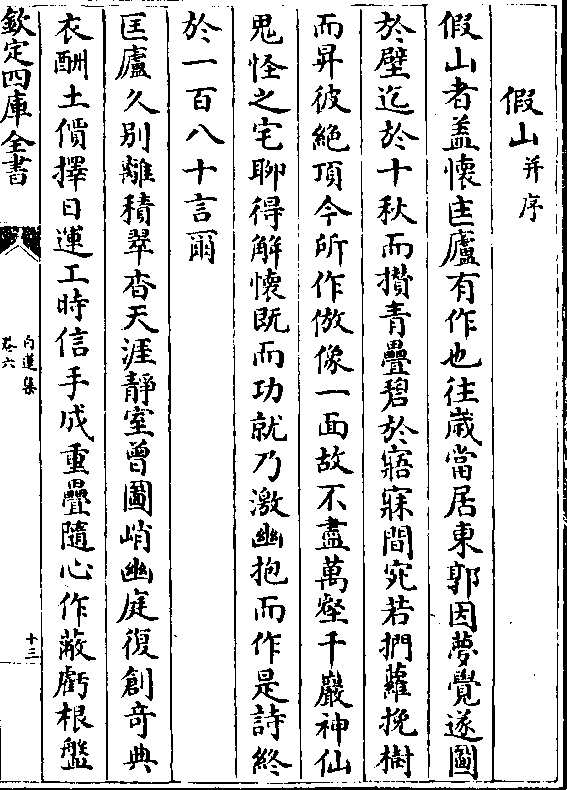 假山并序
假山者盖懷匡廬有作也往歲當居東郭因夢覺遂圖
於壁迄於十秋而攢青疊碧於寤寐間宛若捫蘿挽樹
而昇彼絶頂今所作倣像一面故不盡萬壑千巖神仙
鬼怪之宅聊得解懷既而功就乃激幽抱而作是詩終
於一百八十言爾
匡廬久别離積翠杳天涯靜室曾圖峭幽庭復創竒典
衣酬土價擇日運工時信手成重疊隨心作蔽虧根盤
欽定四庫全書
白蓮集
卷六
十三